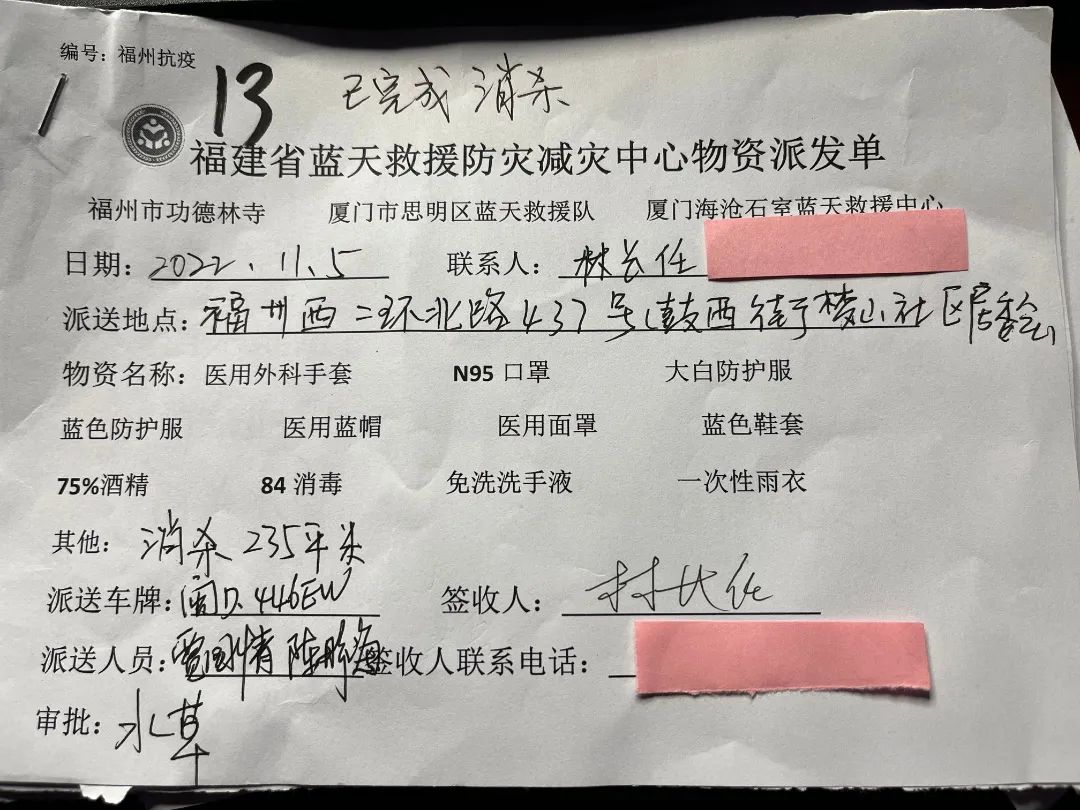 编号：福州抗疫
13 已完成消杀
福建省蓝天救援防灾减灾中心物资派发单
福州市功德林寺 厦门市思明区蓝天救援队 厦门海沧石室蓝天救援中心
日期：2022.11.5 联系人：林长任
派送地点：福州西二环北路437号(鼓西街梦山社区居委会)
物资名称：医用外科手套 N95 口罩 大白防护服
蓝色防护服 医用蓝帽 医用面罩 蓝色鞋套
75%酒精 84 消毒 免洗洗手液 一次性雨衣
其他：消杀 235平米
派送车牌：闽D.446EW 签收人：
派送人员： 签收人联系电话：
审批：水草